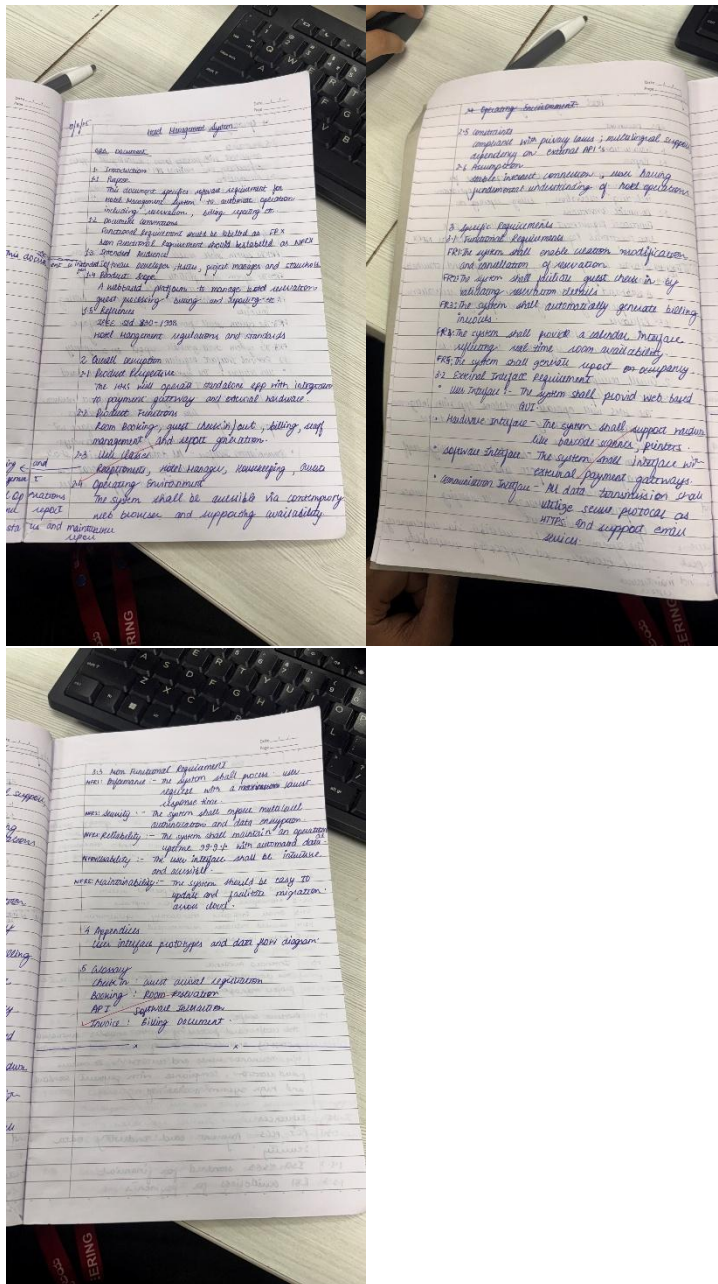 Hotel Mangement System
SRS Document
1. Introduction
1.1 Purpose
This document specifies requirement for
Hotel Mangement System to automate operation
including reservation, billing reporting etc
1.2 Document conventions
Functional Requirement should be labelled as FRX
Non Functional Requirement should be labelled as NFRX
1.3 Intended Audience
developer, project manager and
1.4 Product Scope
A webbased platform to manage hotel reservation
guest processing billing and reporting etc
1.5 References
IEEE Std 830-1998
Hotel Mangement regulations and standards
2. Overall Description
2.1 Product Perspective
The HMS will operate standalone app with integration
to payment gateway and external hardware.
2.2 Product Functions
Room Booking, guest check in/out, billing, staff
management and report generation.
2.3 User Classes
Receptionists, Hotel Manager, Housekeeping, Guests
2.4 Operating Environment
The system shall be accessible via contemporary
web browser and supporting availability
and maintenance
report
Operating Environment
2.5 constraints
compliance with privacy laws; multilingual support
dependency on External API's
2.6 Assumption
stable internet connection, users having
fundamental understanding of hotel operations
3. Specific Requirements
3.1 Functional Requirements
FR1: The system shall enable creation modification
and cancellation of reservation
FR2: The system shall facilitate guest check in by
validating reservation details
FR3: The system shall automatically generate billing
invoices.
FR4: The system shall provide a calendar Interface
reflecting real time room availability
FR5: The system shall generate report on occupancy.
3.2 External Interface Requirement
• User Interface :- The system shall provid web based
GUI
• Hardware Interface - The system shall support
like barcode scanner, printers.
• Software Interface - The system shall Interface with
external payment gateways.
• Communication Interface - All data transmission shall
utilize secure protocol as
HTTPS and support email
services.
3.3 Non Functional Requirement
NFR1: Performance :- the system shall process user
request with a
response time.
NFR2: Security :- The system shall enforce multilevel
authentication and data encryption.
NFR3: Reliability :- The system shall maintain an operation
uptime 99.9% with automated data
NFR4: Usability :- The user interface shall be intuitive
and accessible.
NFR5: Maintainability :- The system should be easy to
update and facilitate migration
across cloud.
4 Appendices
User interface prototypes and data flow diagram.
5 Glossary
Check in : Guest arrival registration
Booking : Room Reservation
API : Software Interaction
Invoice : Billing Document.